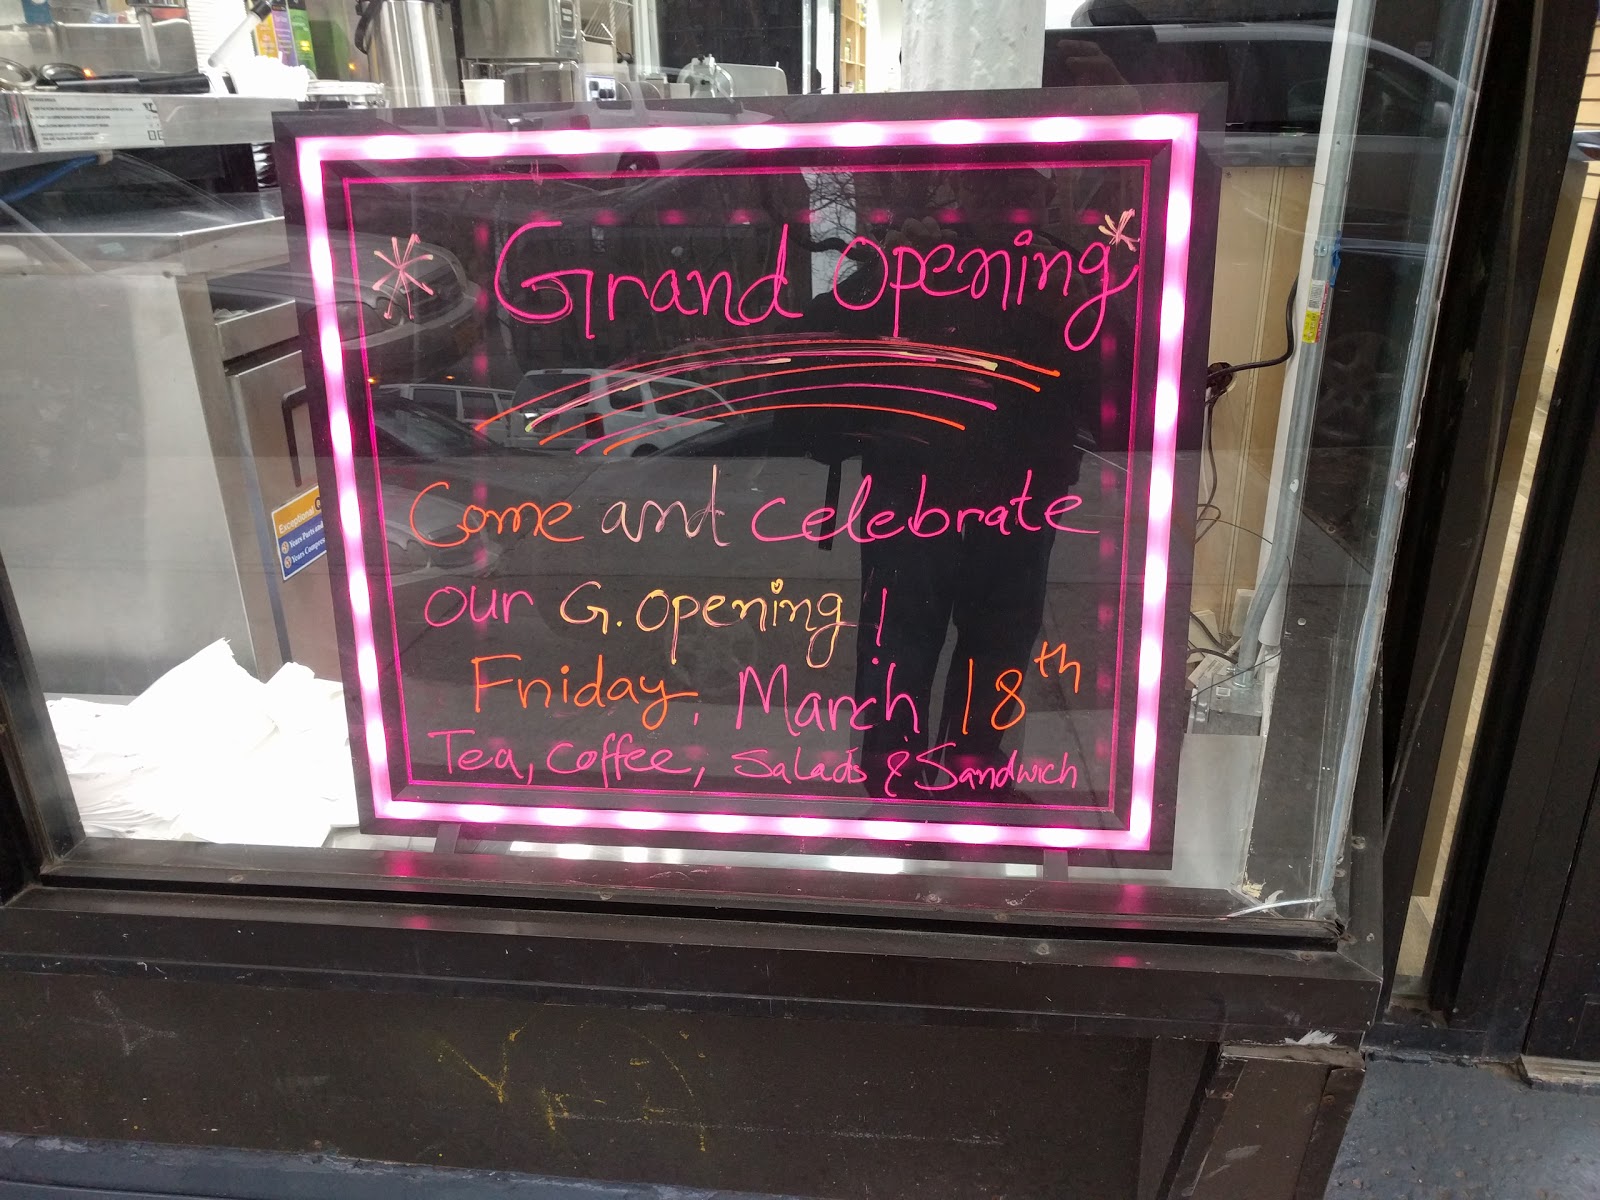 * Grand Opening *
Come and celebrate
our G. opening!
Friday, March 18th
Tea, Coffee, Salads & Sandwich
Exceptional
Years Parts and